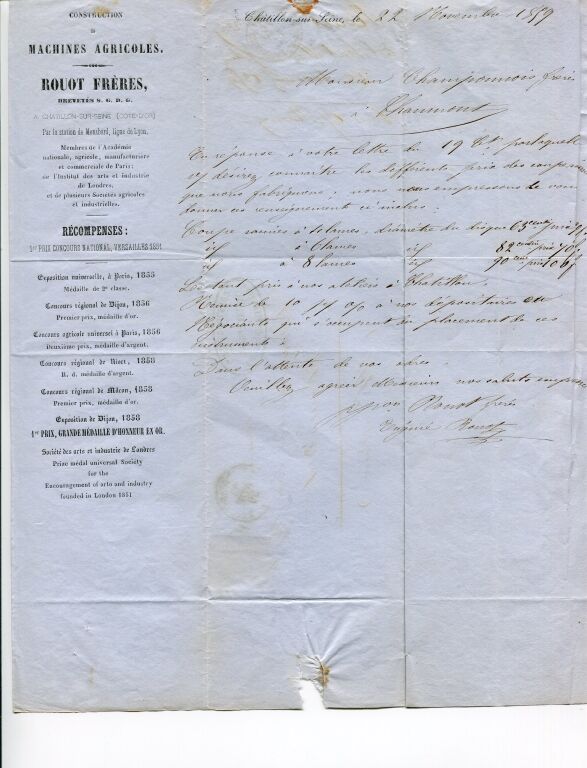 CONSTRUCTION
DE
MACHINES AGRICOLES.
ROUOT FRÈRES,
BREVETÉS S. G. D. G.
A CHATILLON-SUR-SEINE (CÔTE-D'OR)
Par la station de Montbard, ligne de Lyon.
Membres de l'Académie
nationale, agricole, manufacturière
et commerciale de Paris;
de l'Institut des arts et industrie
de Londres,
et de plusieurs Sociétés agricoles
et industrielles.
RÉCOMPENSES :
1er PRIX CONCOURS NATIONAL, VERSAILLES 1851
Exposition universelle, à Paris, 1855
Médaille de 2e classe.
Concours régional de Dijon, 1856
Premier prix, médaille d'or.
Concours agricole universel à Paris, 1856
Deuxième prix, médaille d'argent.
Concours régional de Niort, 1858
R. d. médaille d'argent.
Concours régional de Mâcon, 1858
Premier prix, médaille d'or.
Exposition de Dijon, 1858
1er PRIX, GRANDE MÉDAILLE D'HONNEUR EN OR.
Société des arts et industrie de Londres
Prize médal universal Society
for the
Encouragement of arts and industry
founded in London 1851
Châtillon-sur-Seine, le 22 Novembre 1859
Monsieur Champonnois frères
à Chaumont
En réponse à votre lettre du 19 Ct. par laquelle
vs désirez connaitre les différents prix des coupe
que nous fabriquons, nous nous empressons de vous
donner ces renseignements
Coupe racines à 4 lames, diamètre du disque 65 cent prix
id à 6 lames id 82 centim prix
id à 8 lames id 90 cent prix
Le tout pris à nos ateliers à Chatillon.
Remise de 10 p % à nos dépositaires ou
Négociants qui s'occupent du placement de ces
instruments
Dans l'attente de vos ordres
Veuillez agréer Messieurs nos saluts empressés
pron Rouot frères
Rouot